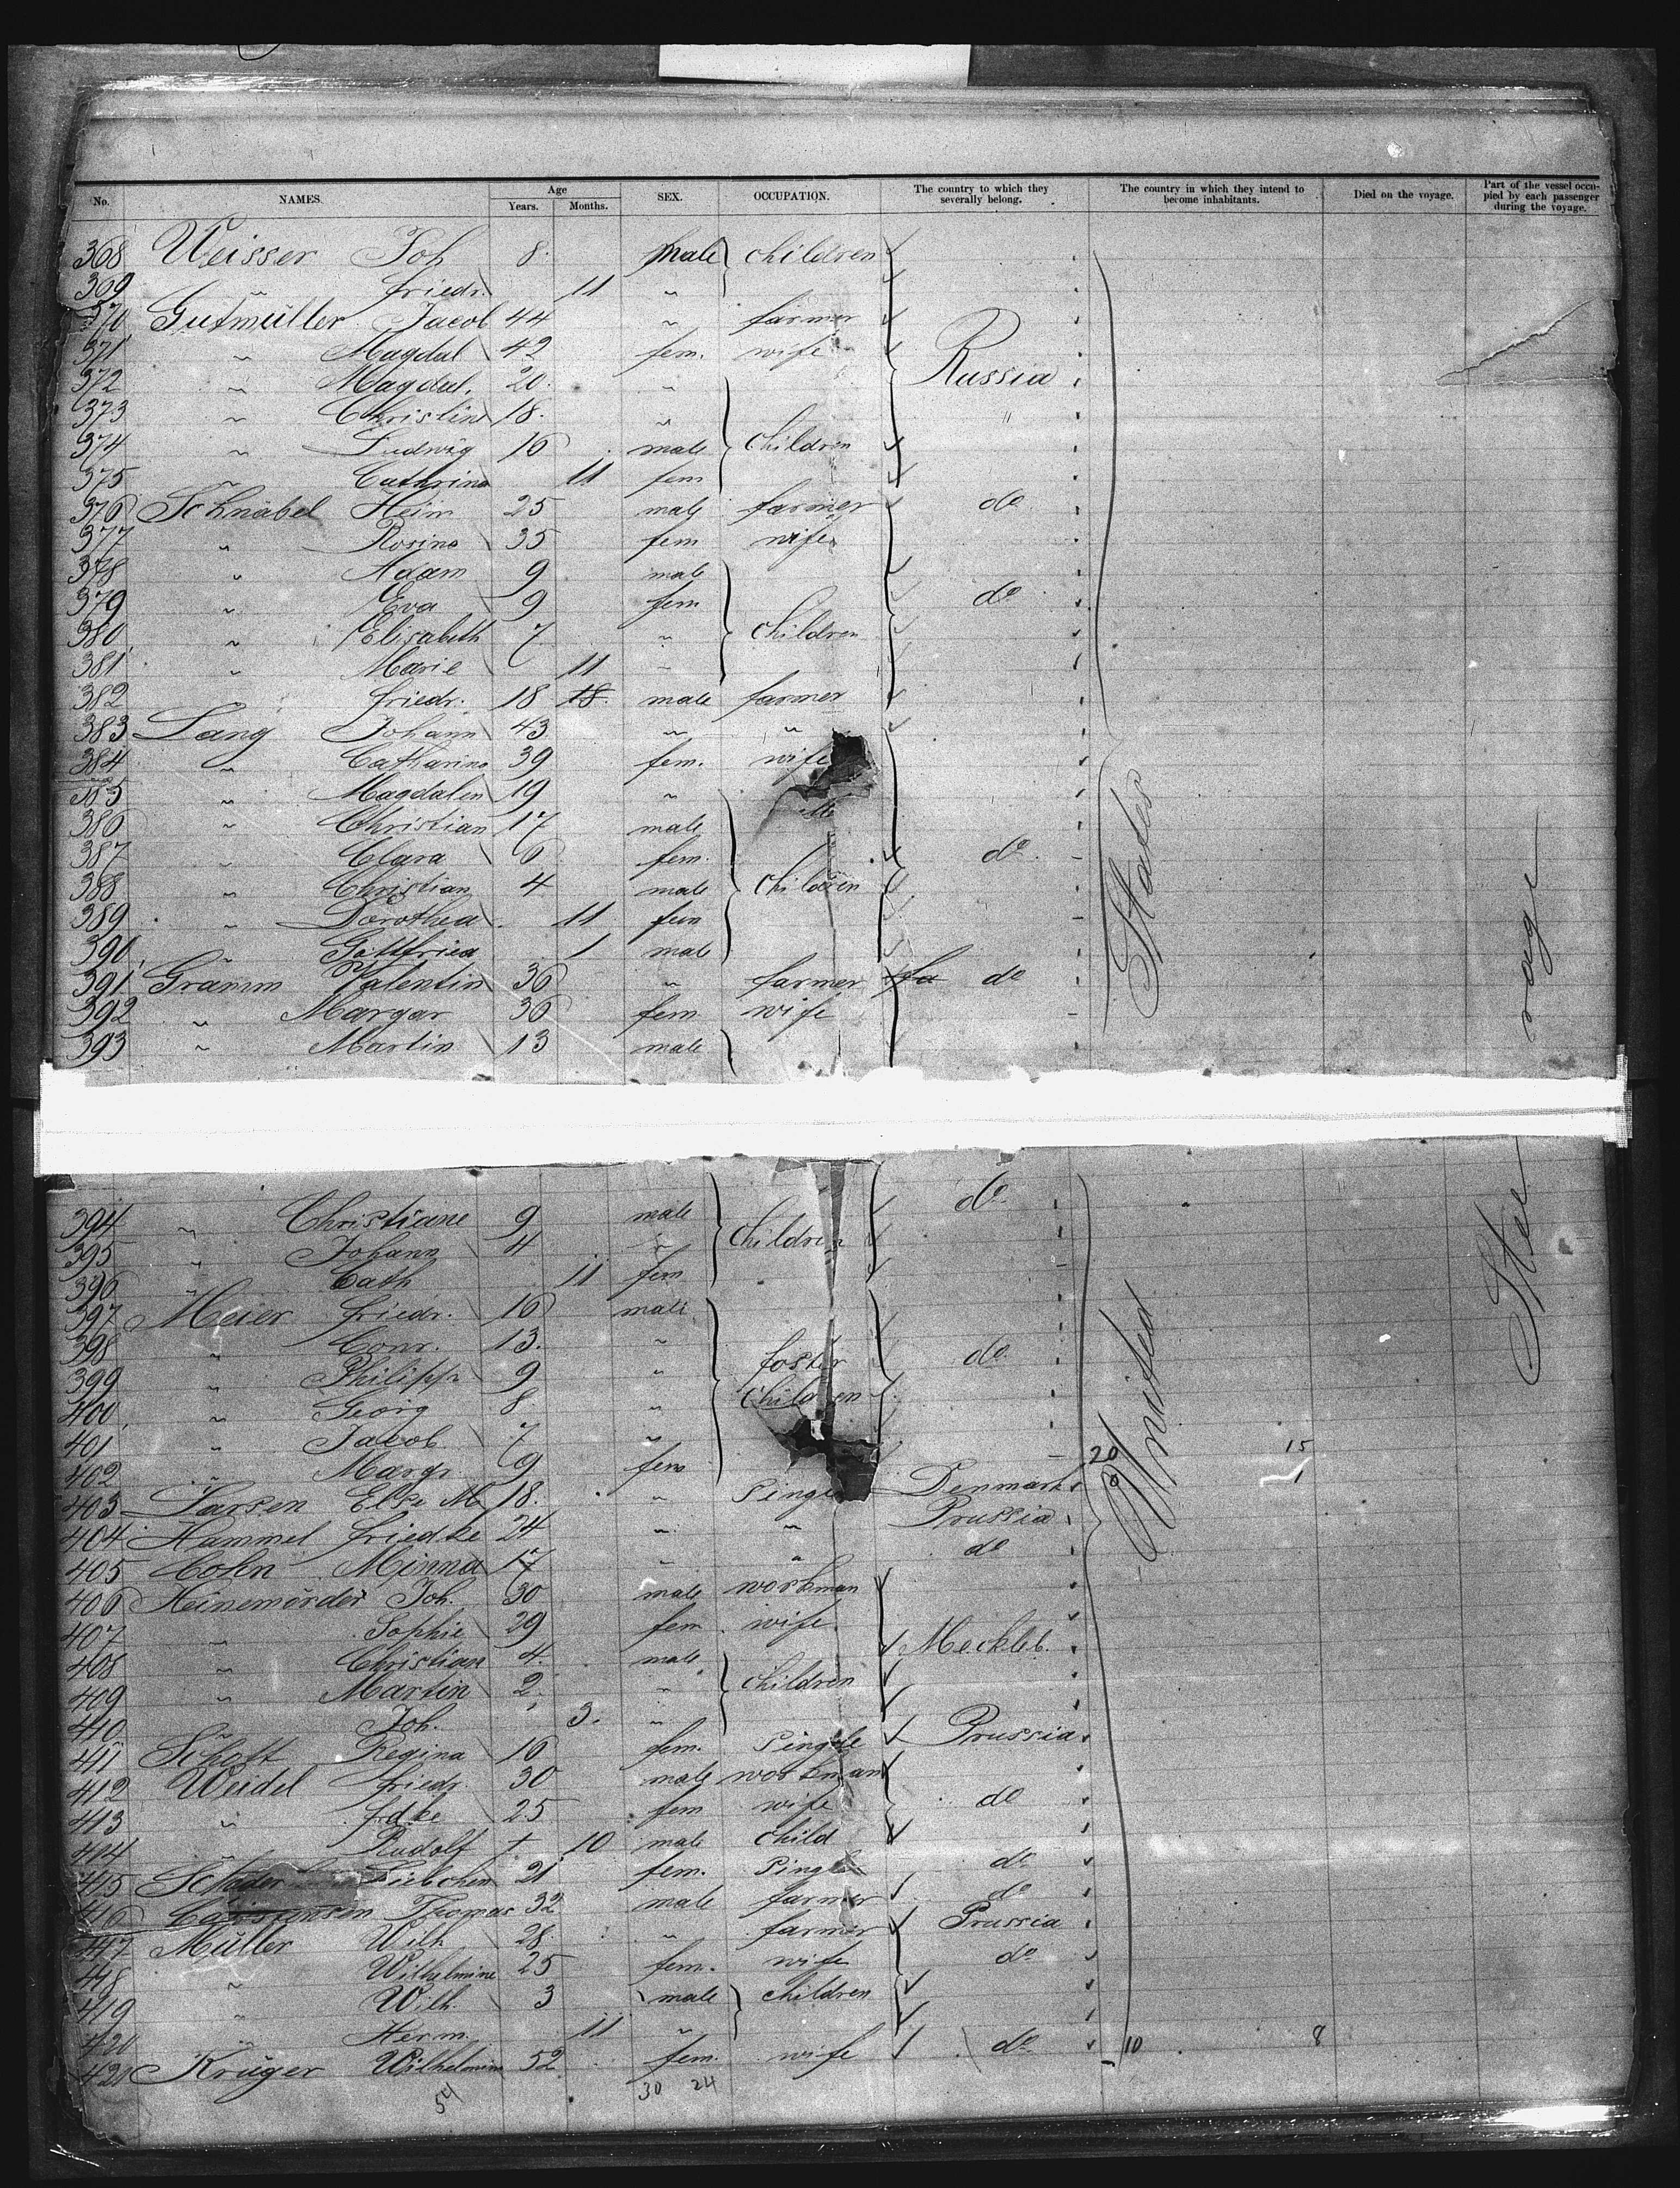 No. NAMES. Age Years. Months. SEX. OCCUPATION. The country to which they severally belong. The country in which they intend to become inhabitants. Died on the voyage. Part of the vessel occupied by each passenger during the voyage.
368 Weisser Joh 8 male children
369 " Friedr. 11 "
370 Gutmüller Jacob 44 " farmer
371 " Magdal 42 fem. wife
372 " Magdal. 20 " Russia
373 " Christine 18 " "
374 " Ludwig 16 male children
375 " Cathrina 11 fem
376 Schnabel Heinr 25 male farmer do
377 " Rosina 35 fem wife
378 " Adam 9 male
379 " Eva 9 fem do
380 " Elisabeth 7 " children
381 " Marie 11 "
382 " Friedr. 18 18 male farmer
383 Lang Johann 43 " "
384 " Catharina 39 fem. wife
385 " Magdalen 19 "
386 " Christian 17 male
387 " Clara 6 fem. do
388 " Christian 4 male children
389 " Dorothea 11 fem
390 " Gottfried 1 male
391 Gramm Valentin 36 " farmer do
392 " Margar 36 fem wife
393 " Martin 13 male
do
394 " Christiane 9 male
395 " Johann 4 " children
396 " Cath 11 fem
397 Meier Friedr. 16 male
398 " Conr. 13 "
399 " Philipp 9 " foster do
400 " Georg 8 " children
401 " Jacob 7 "
402 " Margr 9 fem 20 15
403 Larsen Else M 18 " Single Denmark 1
404 Hammel Friedke 24 " " Prussia
405 Cohn Minna 17 " " do
406 Heinemörder Joh. 30 male workman
407 " Sophie 29 fem wife
408 " Christian 4 male Meckleb.
409 " Martin 2 " children
410 " Joh. 3 "
411 Schott Regina 16 fem. Single Prussia
412 Weidel Friedr. 30 male workman
413 " Fdke 25 fem wife do
414 " Rudolf + 10 male child
415 Liebchen 21 fem. Single do
416 Thomas 32 male farmer do
417 Müller Wilh 28 " farmer Prussia
418 " Wilhelmine 25 fem. wife do
419 " Wilh. 3 male children
420 " Herm. 11 "
421 Krüger Wilhelmine 52 fem. wife do 10 8
54 30 24
United States
Steerage